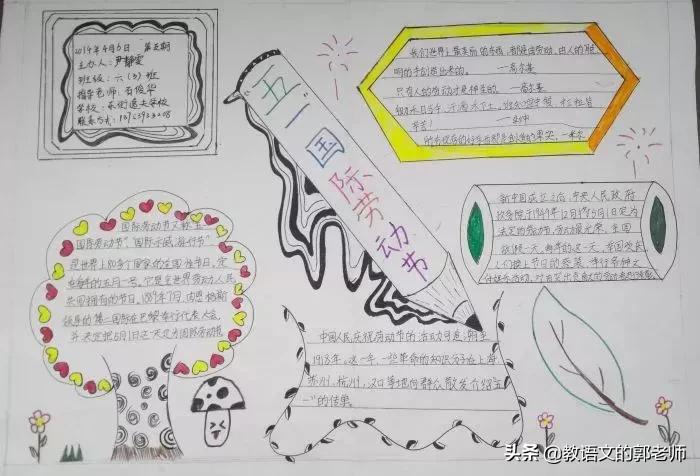 2019年4月6日 第五期
主办人:尹静雯
班级:六(3)班
指导老师:石俊华
学校:东街道大学校
联系方式:
五一国际劳动节
我们世界上最美丽的东西,都是由劳动、由人的聪
明的手创造出来的。 ——高尔基
只有人的劳动才是神圣的 ——高尔基
锄禾日当午,汗滴禾下土,谁知盘中餐,粒粒皆
辛苦!
国际劳动节又称"五一
国际劳动节""国际示威游行节"
是世界上80多个国家的全国性节日,定
在每年的五月一号。它是全世界劳动人民
共同拥有的节日,1889年7月,由恩格斯
领导的第二国际在巴黎举行代表大会,
并决定把5月1日这一天定为国际劳动节
新中国成立之后,中央人民政府
政务院于1949年12月将5月1日定为
法定的劳动节,
放假一天。每年的这一天,举国欢庆
人们换上节日的盛装,
中国人民庆祝劳动节的活动可追溯至
1918年,这一年,一些革命的知识分子在上海
苏州、杭州、汉口等地向群众散发介绍"五
一"的传单。
头条 @教语文的郭老师